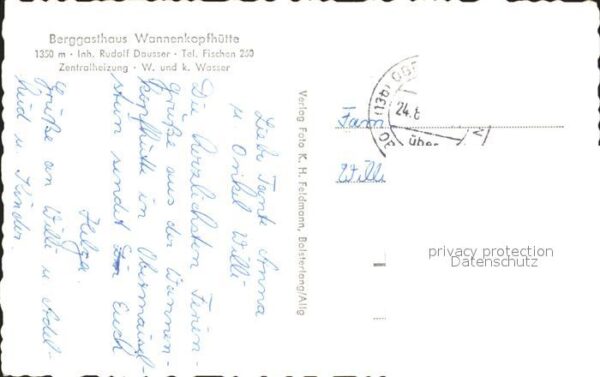 Berggasthaus Wannenkopfhütte
1350 m · Inh. Rudolf Dausser · Tel. Fischen 260
Zentralheizung · W. und k. Wasser
Liebe Tante Anna
u. Onkel Willi
Die herzlichsten Ferien-
grüße aus der Wannen-
kopfhütte in Obermaisel-
stein sendet Euch
Helga.
Grüße an Willi u. Adel-
heid u. Kinder.
Verlag Foto K. H. Feldmann, Bolsterlang/Allg
24.8
über
Fam
Willi
privacy protection
Datenschutz